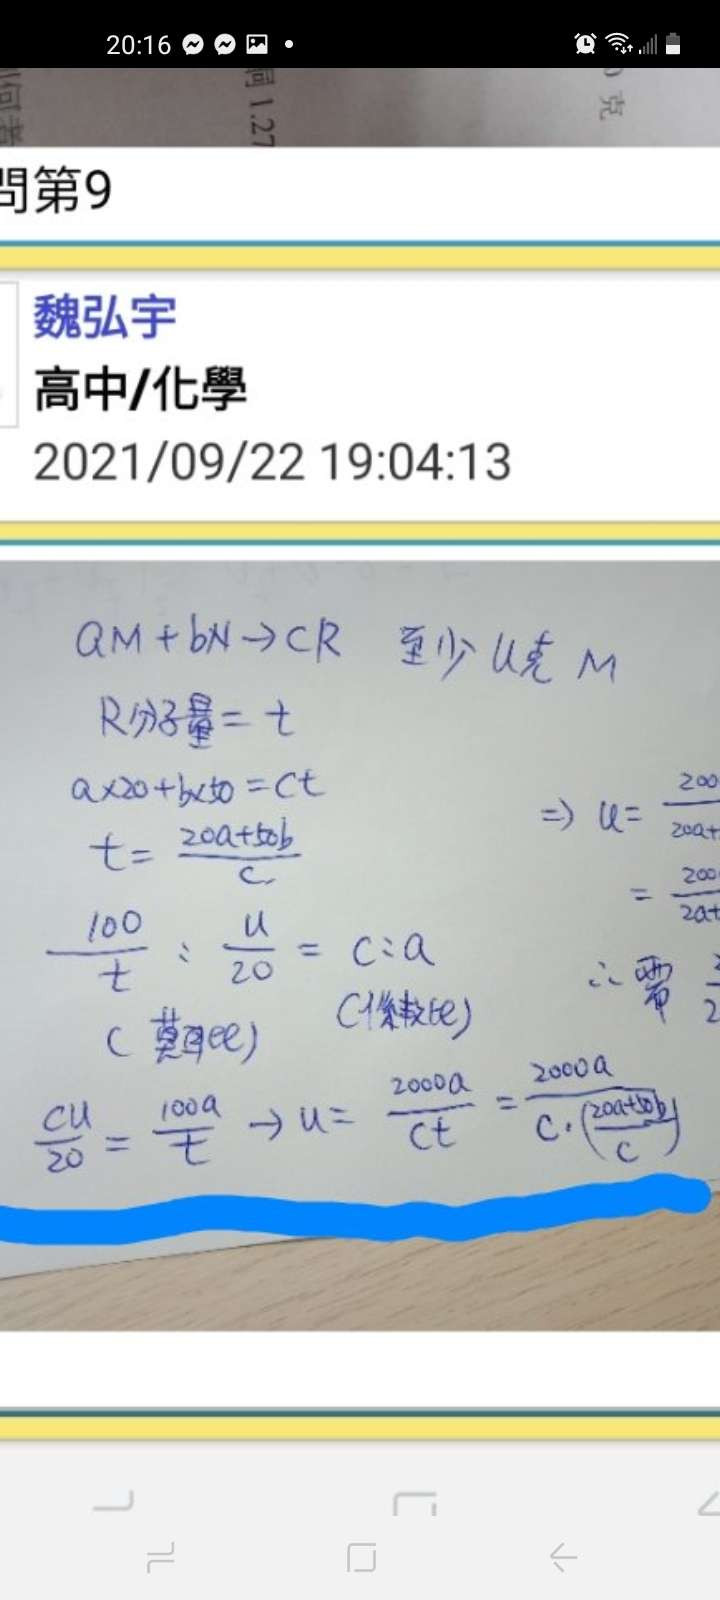 20:16
何者
同 1.27
克
問第9
魏弘宇
高中/化學
2021/09/22 19:04:13
aM + bN → cR 至少 u克 M
R分子量 = t
a×20+b×50 = ct
t = \frac{20a+50b}{c}
\frac{100}{t} : \frac{u}{20} = c:a
(莫耳比) (係數比)
\frac{cu}{20} = \frac{100a}{t} → u = \frac{2000a}{ct} = \frac{2000a}{c·(\frac{20a+50b}{c})}
⇒ u = \frac{200}{20a+}
= \frac{200}{2a+}
∴ 需